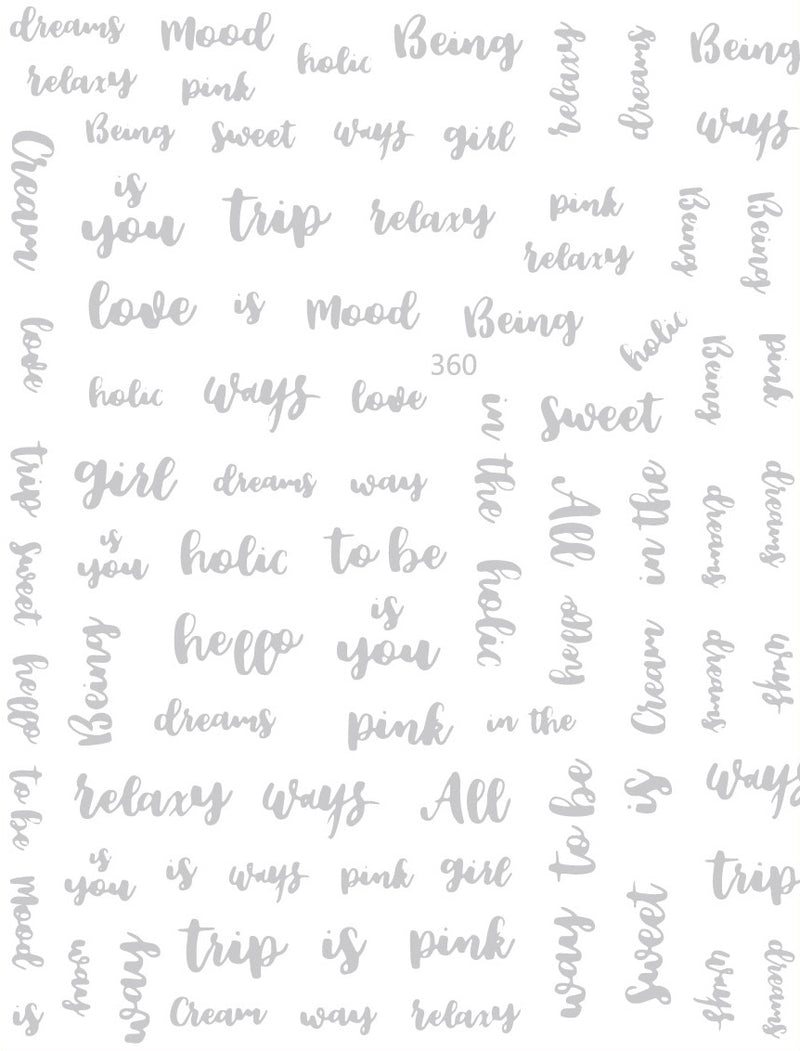 dreams Mood holic Being relaxy dreams Being
relaxy pink
Being sweet ways girl ways
Cream
is
you trip relaxy pink Being Being
relaxy
love is Mood Being holic
love 360 Being pink
holic ways love in the sweet
trip girl dreams way All in the dreams dreams
is
you holic to be
sweet holic hello
hello is
you Cream dreams ways
hello Being
dreams pink in the
to be relaxy ways All way to be is ways
is
you is ways pink girl trip
Mood way way trip is pink sweet ways dreams
is Cream way relaxy